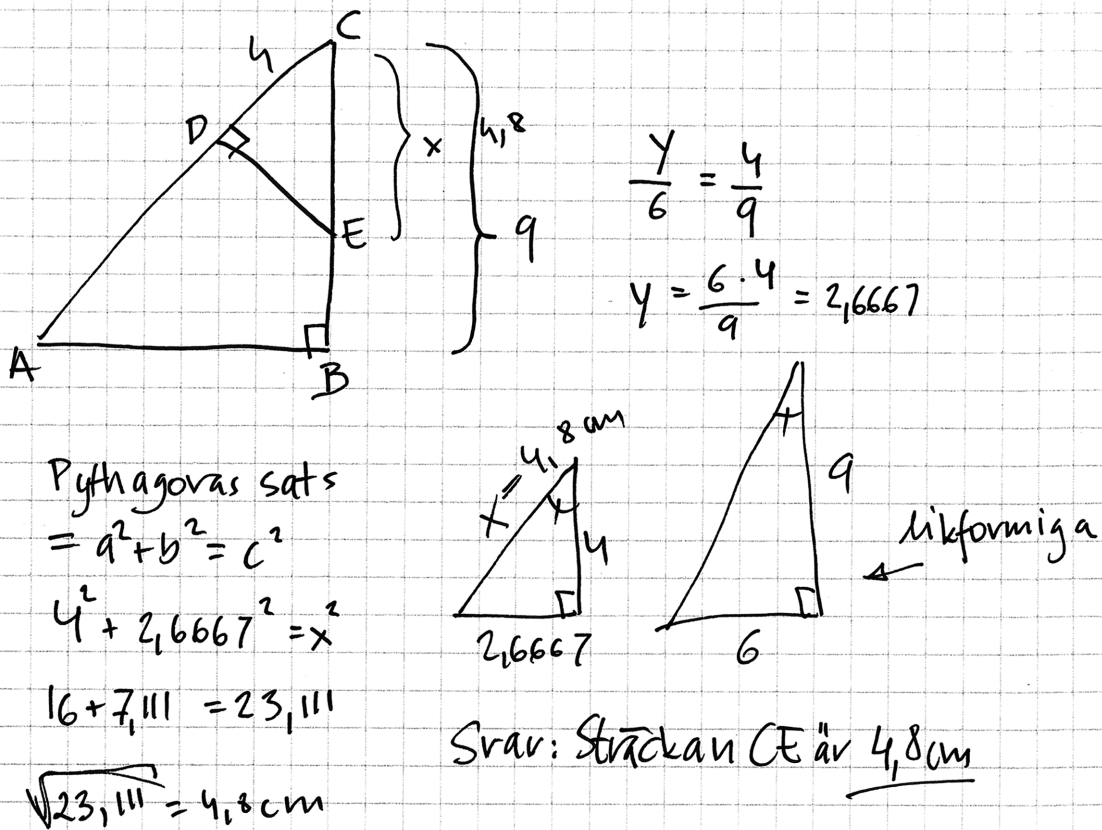 C
4
D
x
4,8
E
9
A
B
y/6 = 4/9
y = 6·4/9 = 2,6667
Pythagoras sats
= a²+b² = c²
4² + 2,6667² = x²
16+7,111 = 23,111
√23,111 = 4,8cm
x = 4,8 cm
4
2,6667
9
6
likformiga
Svar: Sträckan CE är 4,8cm